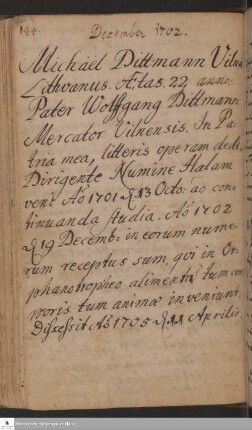 144.
December 1702.
Michaël Dittmann Viln:
Lithvanus. Ætas. 22, anno.
Pater Wolffgang Dittmann
Mercator Vilnensis. In Pa-
tria mea, litteris operam dedi,
Dirigente Numine Halam
veni Aõ 1701 d 13 Octo: ao con-
tinuanda studia. Aõ 1702
d 19 Decemb: in eorum nume-
rum receptus sum, qvi in Or-
phanotropheo alimenta tum cor-
poris tum animæ inveniunt.
Discessit Aõ 1705 d 11 Aprilis